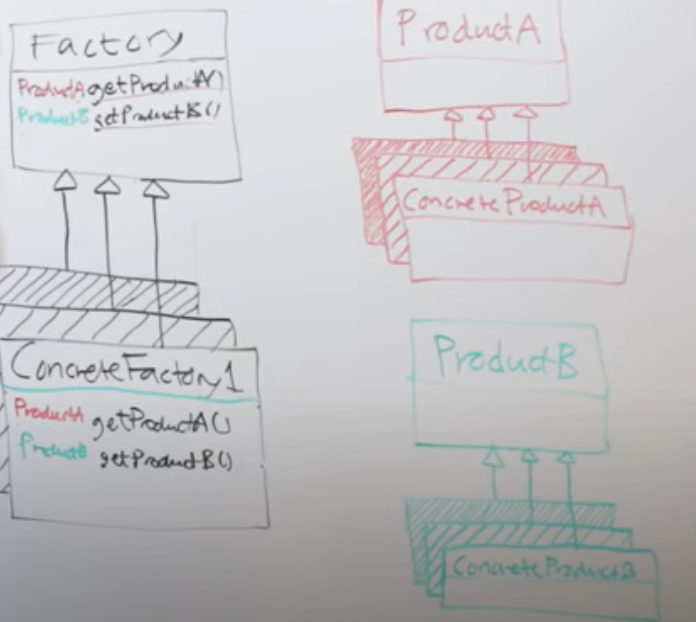 Factory
ProductA getProductA()
ProductB getProductB()
ConcreteFactory1
ProductA getProductA()
ProductB getProductB()
ProductA
ConcreteProductA
ProductB
ConcreteProductB